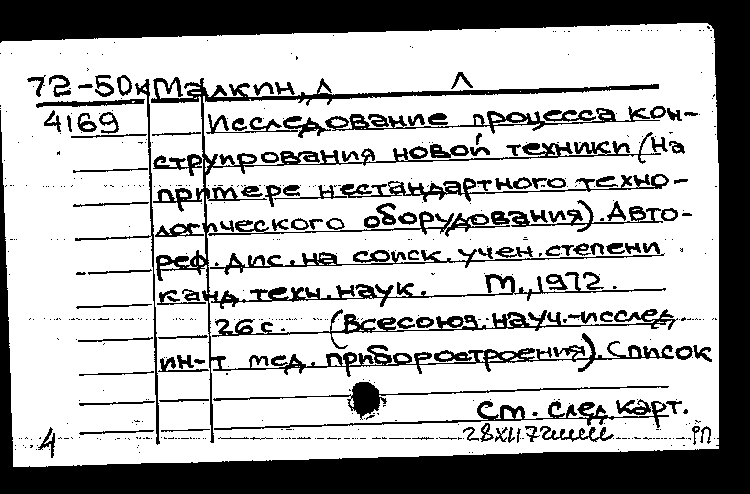 72-50к Малкин, Л Л
4169 Исследование процесса кон-
струирования новой техники (на
примере нестандартного техно-
логического оборудования). Авто-
реф. дис. на соиск. учен. степени
канд. техн. наук. М., 1972.
26 с. (Всесоюз. науч.-исслед.
ин-т мед. приборостроения). Список
См. след. карт.
4 28XII72 рп